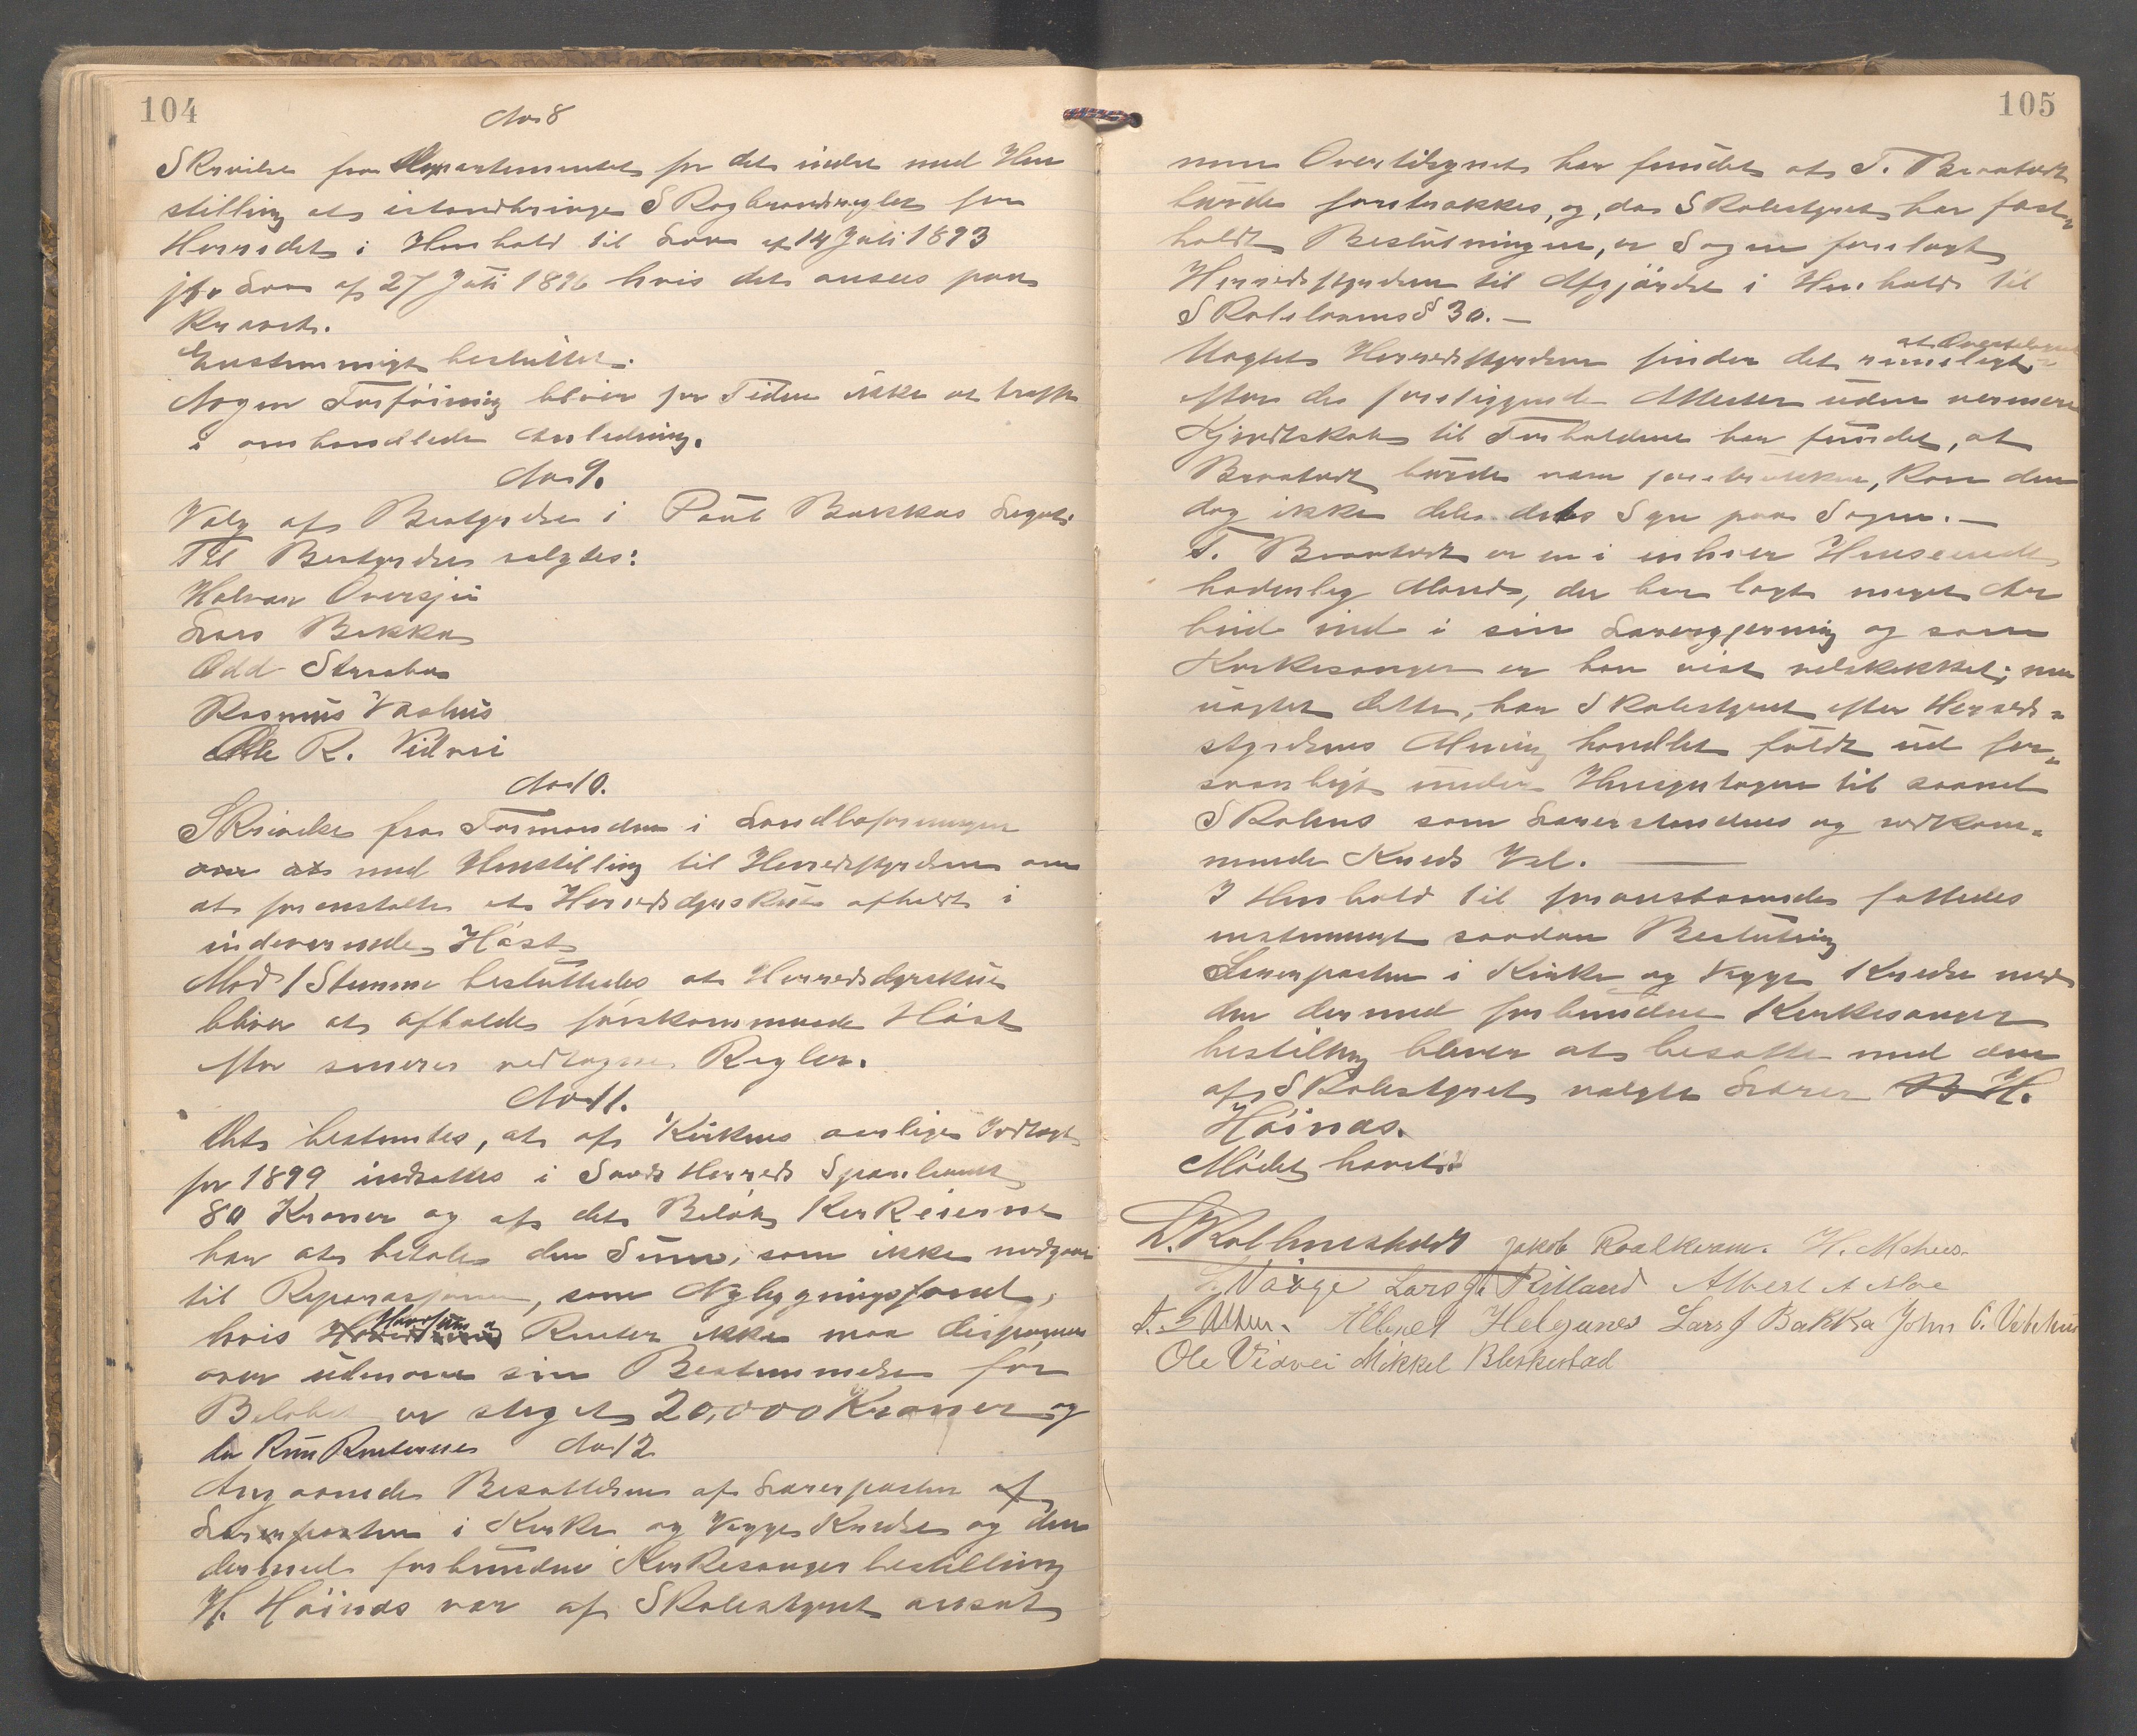 104
No 8
Skrivelse fra Departementet for det indre med Hen
stilling at istandbringe Skogbrandregler for
Herredet i Henhold til Lov af 14 Juli 1893
jfr Lov af 27 Juli 1896 hvis det ansees paa
krævet.
Enstemmigt besluttet:
Nogen Forføining bliver for Tiden ikke at træffe
i omhandlede Anledning.
No 9.
Valg af Bestyrelse i Paul Bakkas Legat.
Til Bestyrelse valgtes:
Halvar Oversjø
Lars Bakka
Odd Straabø
Rasmus Vaahus
Ole R. Vidvei
No 10.
Skrivelse fra Formanden i Landboforeningen
om at med Henstilling til Herredsstyrelsen om
at foranstalte et Herredsdyrskue afholdt i
indeværende Høst
Mod 1 Stemme besluttedes at Herredsdyrskue
bliver at afholde førstkommende Høst
efter senere vedtagne Regler.
No 11.
Det bestemtes, at af Kirkens aarlige Indtægt
for 1899 indsættes i Sands Herreds Sparebank
80 Kroner og af det Beløb Kirkeierne
har at betale den Sum, som ikke medgaar
til Reparasjoner, som Nybygningsfond,
hvis Hovedsum og Renter ikke maa disponeres
over udenom sin Bestemmelse før
Beløbet er steget 20,000 Kroner og
da kun Renterne
No 12
Angaaende Besættelsen af Lærerposten af
Lærerposten i Kirke og Vægge Kredse og den
dermed forbundne Kirkesangerbestilling
H. Høinæs var af Skolestyret ansat
105
men Overtilsynet har fundet at T. Braatvedt
burde foretrækkes, og, da Skolestyret har fast„
holdt Beslutningen, er Sagen forelagt
Herredsstyrelsen til Afgjørelse i Henhold til
Skolelovens § 30. —
Uagtet Herredsstyrelsen finder det rimeligt
at Overtilsynet
efter de foreliggende Attester uden nærmere
Kjendtskab til Forholdene har fundet, at
Braatvedt burde være foretrukken, kan den
dog ikke dele dets Syn paa Sagen. —
T. Braatvedt er en i enhver Henseende
hæderlig Mand, der har lagt meget Ar
beide ind i sin Lærergjerning og som
Kirkesanger er han vist velskikket; men
uagtet dette, har Skolestyret efter Herreds„
styrelsens Mening handlet fuldt ud for„
svarligt under Hensyntagen til saavel
Skolens som Lærerstandens og vedkom„
mende Kreds Vel. —
I Henhold til foranstaaende fattedes
enstemmigt saadan Beslutning
Lærerposten i Kirke og Vægge Kredse med
den dermed forbundne Kirkesanger
bestilling bliver at besætte med den
af Skolestyret valgte Lærer H.
Høinæs.
Mødet hævet.
Jakob Roalkvam. H. Mehus.
Vårge Lars G. Ritland Albert A Moe
Helgenes Lars J Bakka John O. Vehehus
Ole Vidvei Mikkel Bleskestad